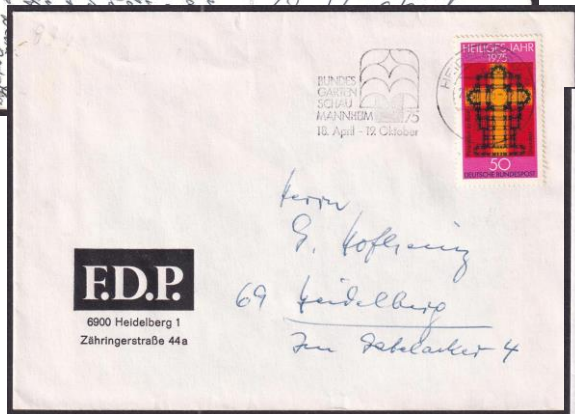 BUNDES
GARTEN
SCHAU
MANNHEIM 75
18. April - 19. Oktober
HEILIGES JAHR
1975
50
DEUTSCHE BUNDESPOST
Herrn
G.
69 Heidelberg
Im 4
F.D.P.
6900 Heidelberg 1
Zähringerstraße 44a